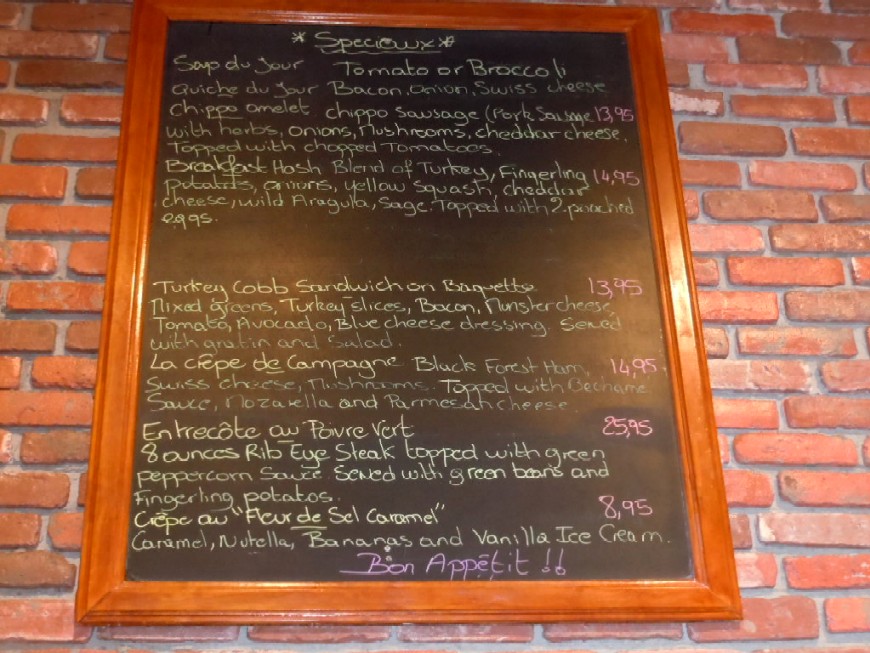 *Specieux*
Soup du Jour Tomato or Broccoli
Quiche du Jour Bacon, onion, Swiss cheese
Chippo omelet chippo sausage (Pork Sausage 13,95
with herbs, onions, Mushrooms, cheddar cheese.
Topped with chopped Tomatoes.
Breakfast Hash Blend of Turkey, Fingerling 14,95
potatoes, onions, yellow squash, cheddar
cheese, wild Aragula, Sage. Topped with 2 poached
eggs.
Turkey Cobb Sandwich on Baguette 13,95
Mixed greens, Turkey slices, Bacon, Munster cheese,
Tomato, Avocado, Blue cheese dressing. Served
with gratin and Salad.
La crêpe de Campagne Black Forest Ham, 14,95
Swiss cheese, Mushrooms. Topped with Bechame
Sauce, Mozarella and Parmesan cheese.
Entrecôte au Poivre Vert 25,95
8 ounces Rib Eye Steak topped with green
peppercorn Sauce. Served with green beans and
Fingerling potatos.
Crêpe au "Fleur de Sel Caramel" 8,95
Caramel, Nutella, Bananas and Vanilla Ice Cream.
Bon Appétit !!